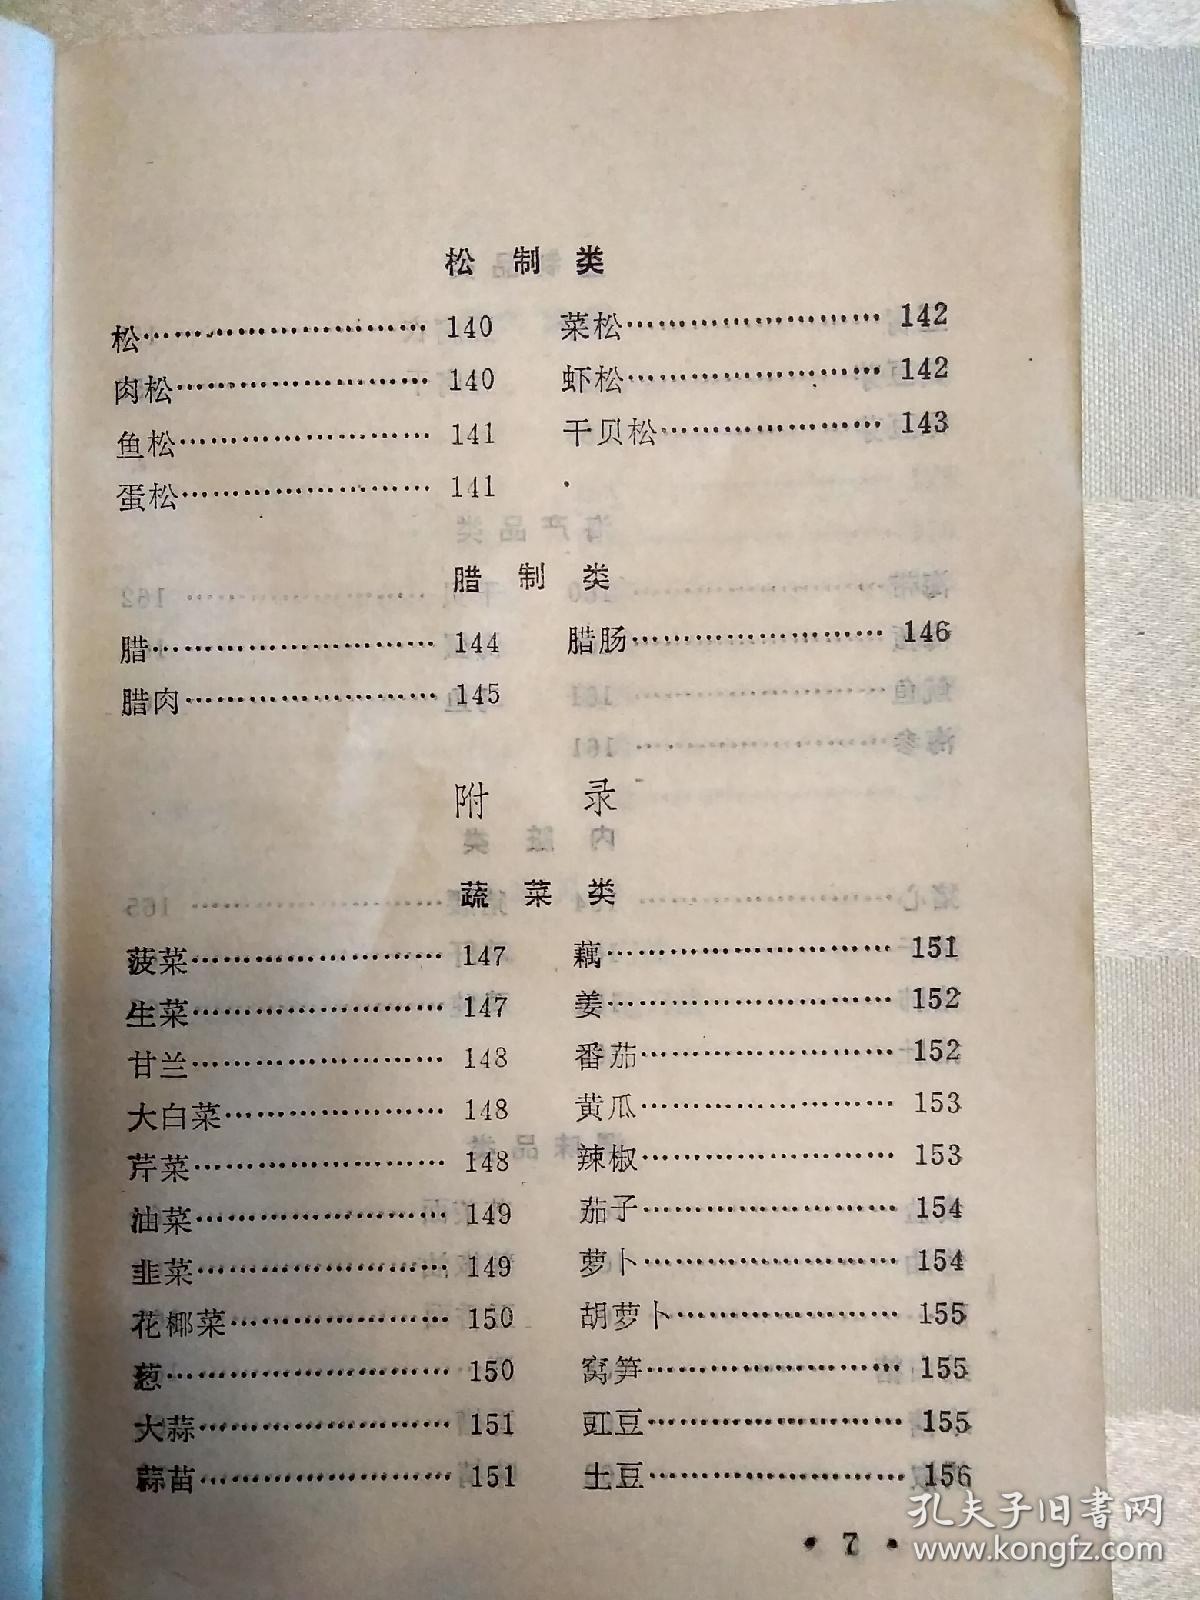 松制类
松………………………… 140
肉松……………………… 140
鱼松……………………… 141
蛋松……………………… 141
菜松……………………… 142
虾松……………………… 142
干贝松…………………… 143
腊制类
腊………………………… 144
腊肉……………………… 145
腊肠……………………… 146
附录
蔬菜类
菠菜……………………… 147
生菜……………………… 147
甘兰……………………… 148
大白菜…………………… 148
芹菜……………………… 148
油菜……………………… 149
韭菜……………………… 149
花椰菜…………………… 150
葱………………………… 150
大蒜……………………… 151
蒜苗……………………… 151
藕………………………… 151
姜………………………… 152
番茄……………………… 152
黄瓜……………………… 153
辣椒……………………… 153
茄子……………………… 154
萝卜……………………… 154
胡萝卜…………………… 155
窝笋……………………… 155
豇豆……………………… 155
土豆……………………… 156
• 7 •
孔夫子旧书网
www.kongfz.com